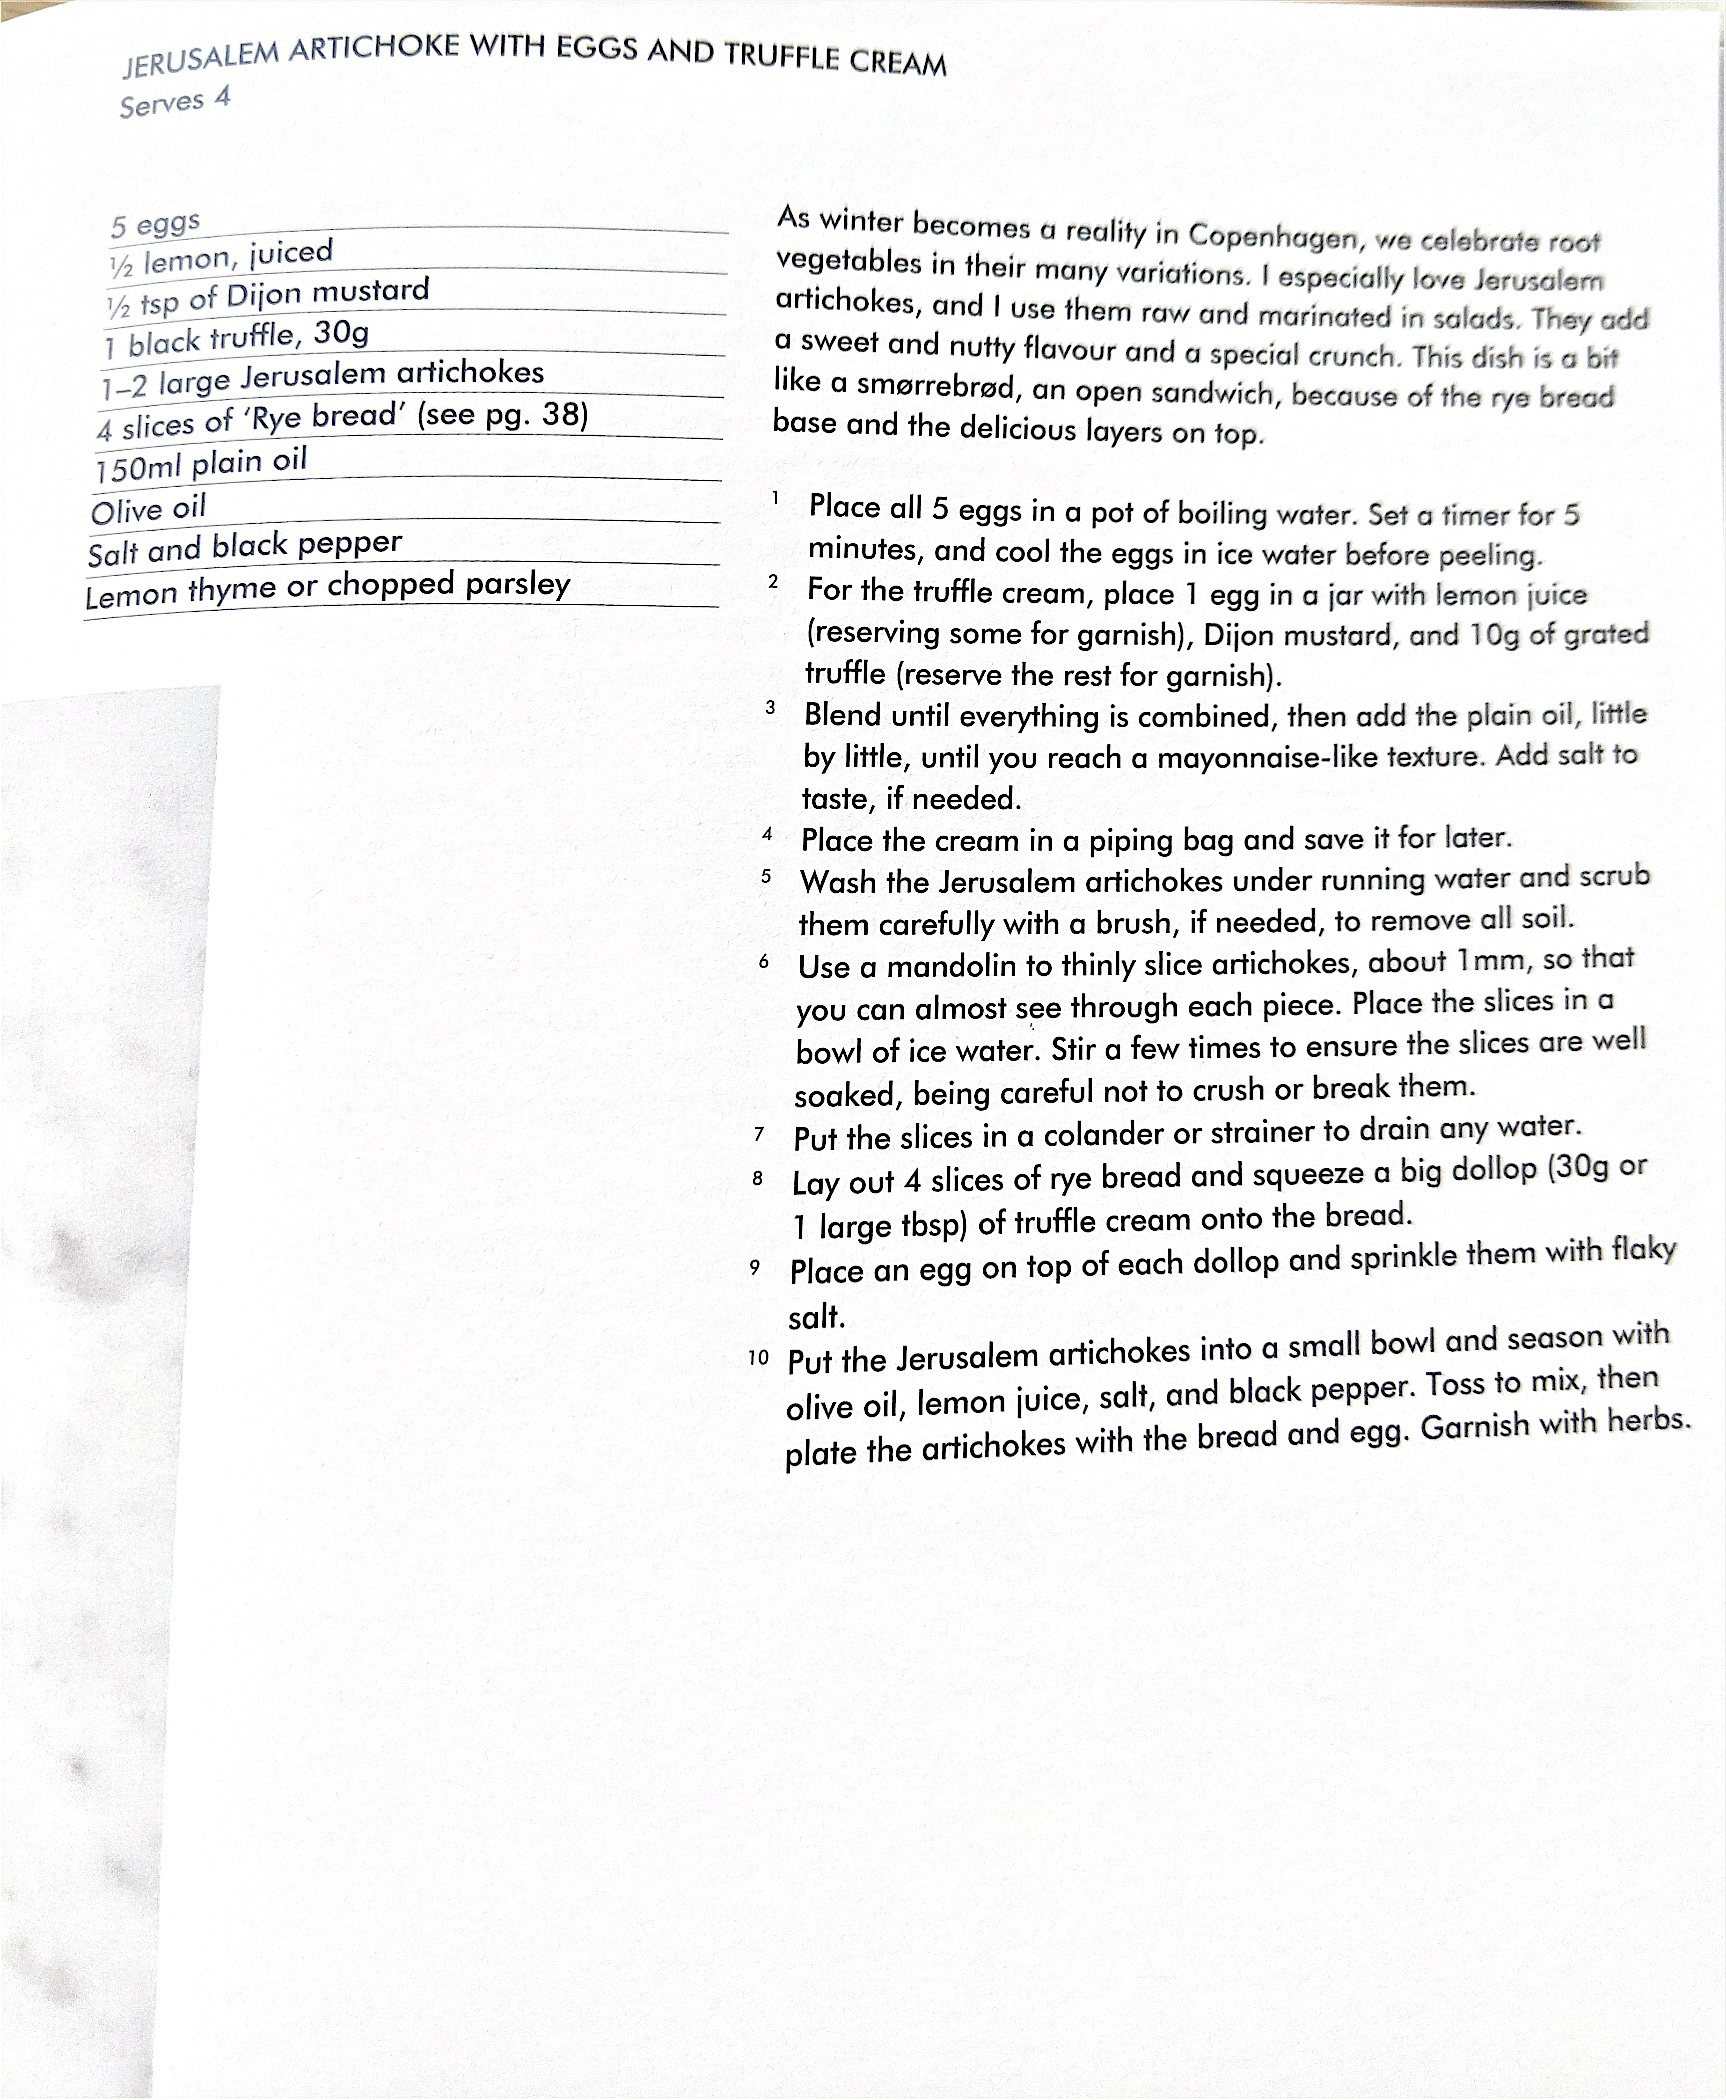 JERUSALEM ARTICHOKE WITH EGGS AND TRUFFLE CREAM
Serves 4
5 eggs
½ lemon, juiced
½ tsp of Dijon mustard
1 black truffle, 30g
1–2 large Jerusalem artichokes
4 slices of ‘Rye bread’ (see pg. 38)
150ml plain oil
Olive oil
Salt and black pepper
Lemon thyme or chopped parsley
As winter becomes a reality in Copenhagen, we celebrate root
vegetables in their many variations. I especially love Jerusalem
artichokes, and I use them raw and marinated in salads. They add
a sweet and nutty flavour and a special crunch. This dish is a bit
like a smørrebrød, an open sandwich, because of the rye bread
base and the delicious layers on top.
1 Place all 5 eggs in a pot of boiling water. Set a timer for 5
minutes, and cool the eggs in ice water before peeling.
2 For the truffle cream, place 1 egg in a jar with lemon juice
(reserving some for garnish), Dijon mustard, and 10g of grated
truffle (reserve the rest for garnish).
3 Blend until everything is combined, then add the plain oil, little
by little, until you reach a mayonnaise-like texture. Add salt to
taste, if needed.
4 Place the cream in a piping bag and save it for later.
5 Wash the Jerusalem artichokes under running water and scrub
them carefully with a brush, if needed, to remove all soil.
6 Use a mandolin to thinly slice artichokes, about 1mm, so that
you can almost see through each piece. Place the slices in a
bowl of ice water. Stir a few times to ensure the slices are well
soaked, being careful not to crush or break them.
7 Put the slices in a colander or strainer to drain any water.
8 Lay out 4 slices of rye bread and squeeze a big dollop (30g or
1 large tbsp) of truffle cream onto the bread.
9 Place an egg on top of each dollop and sprinkle them with flaky
salt.
10 Put the Jerusalem artichokes into a small bowl and season with
olive oil, lemon juice, salt, and black pepper. Toss to mix, then
plate the artichokes with the bread and egg. Garnish with herbs.